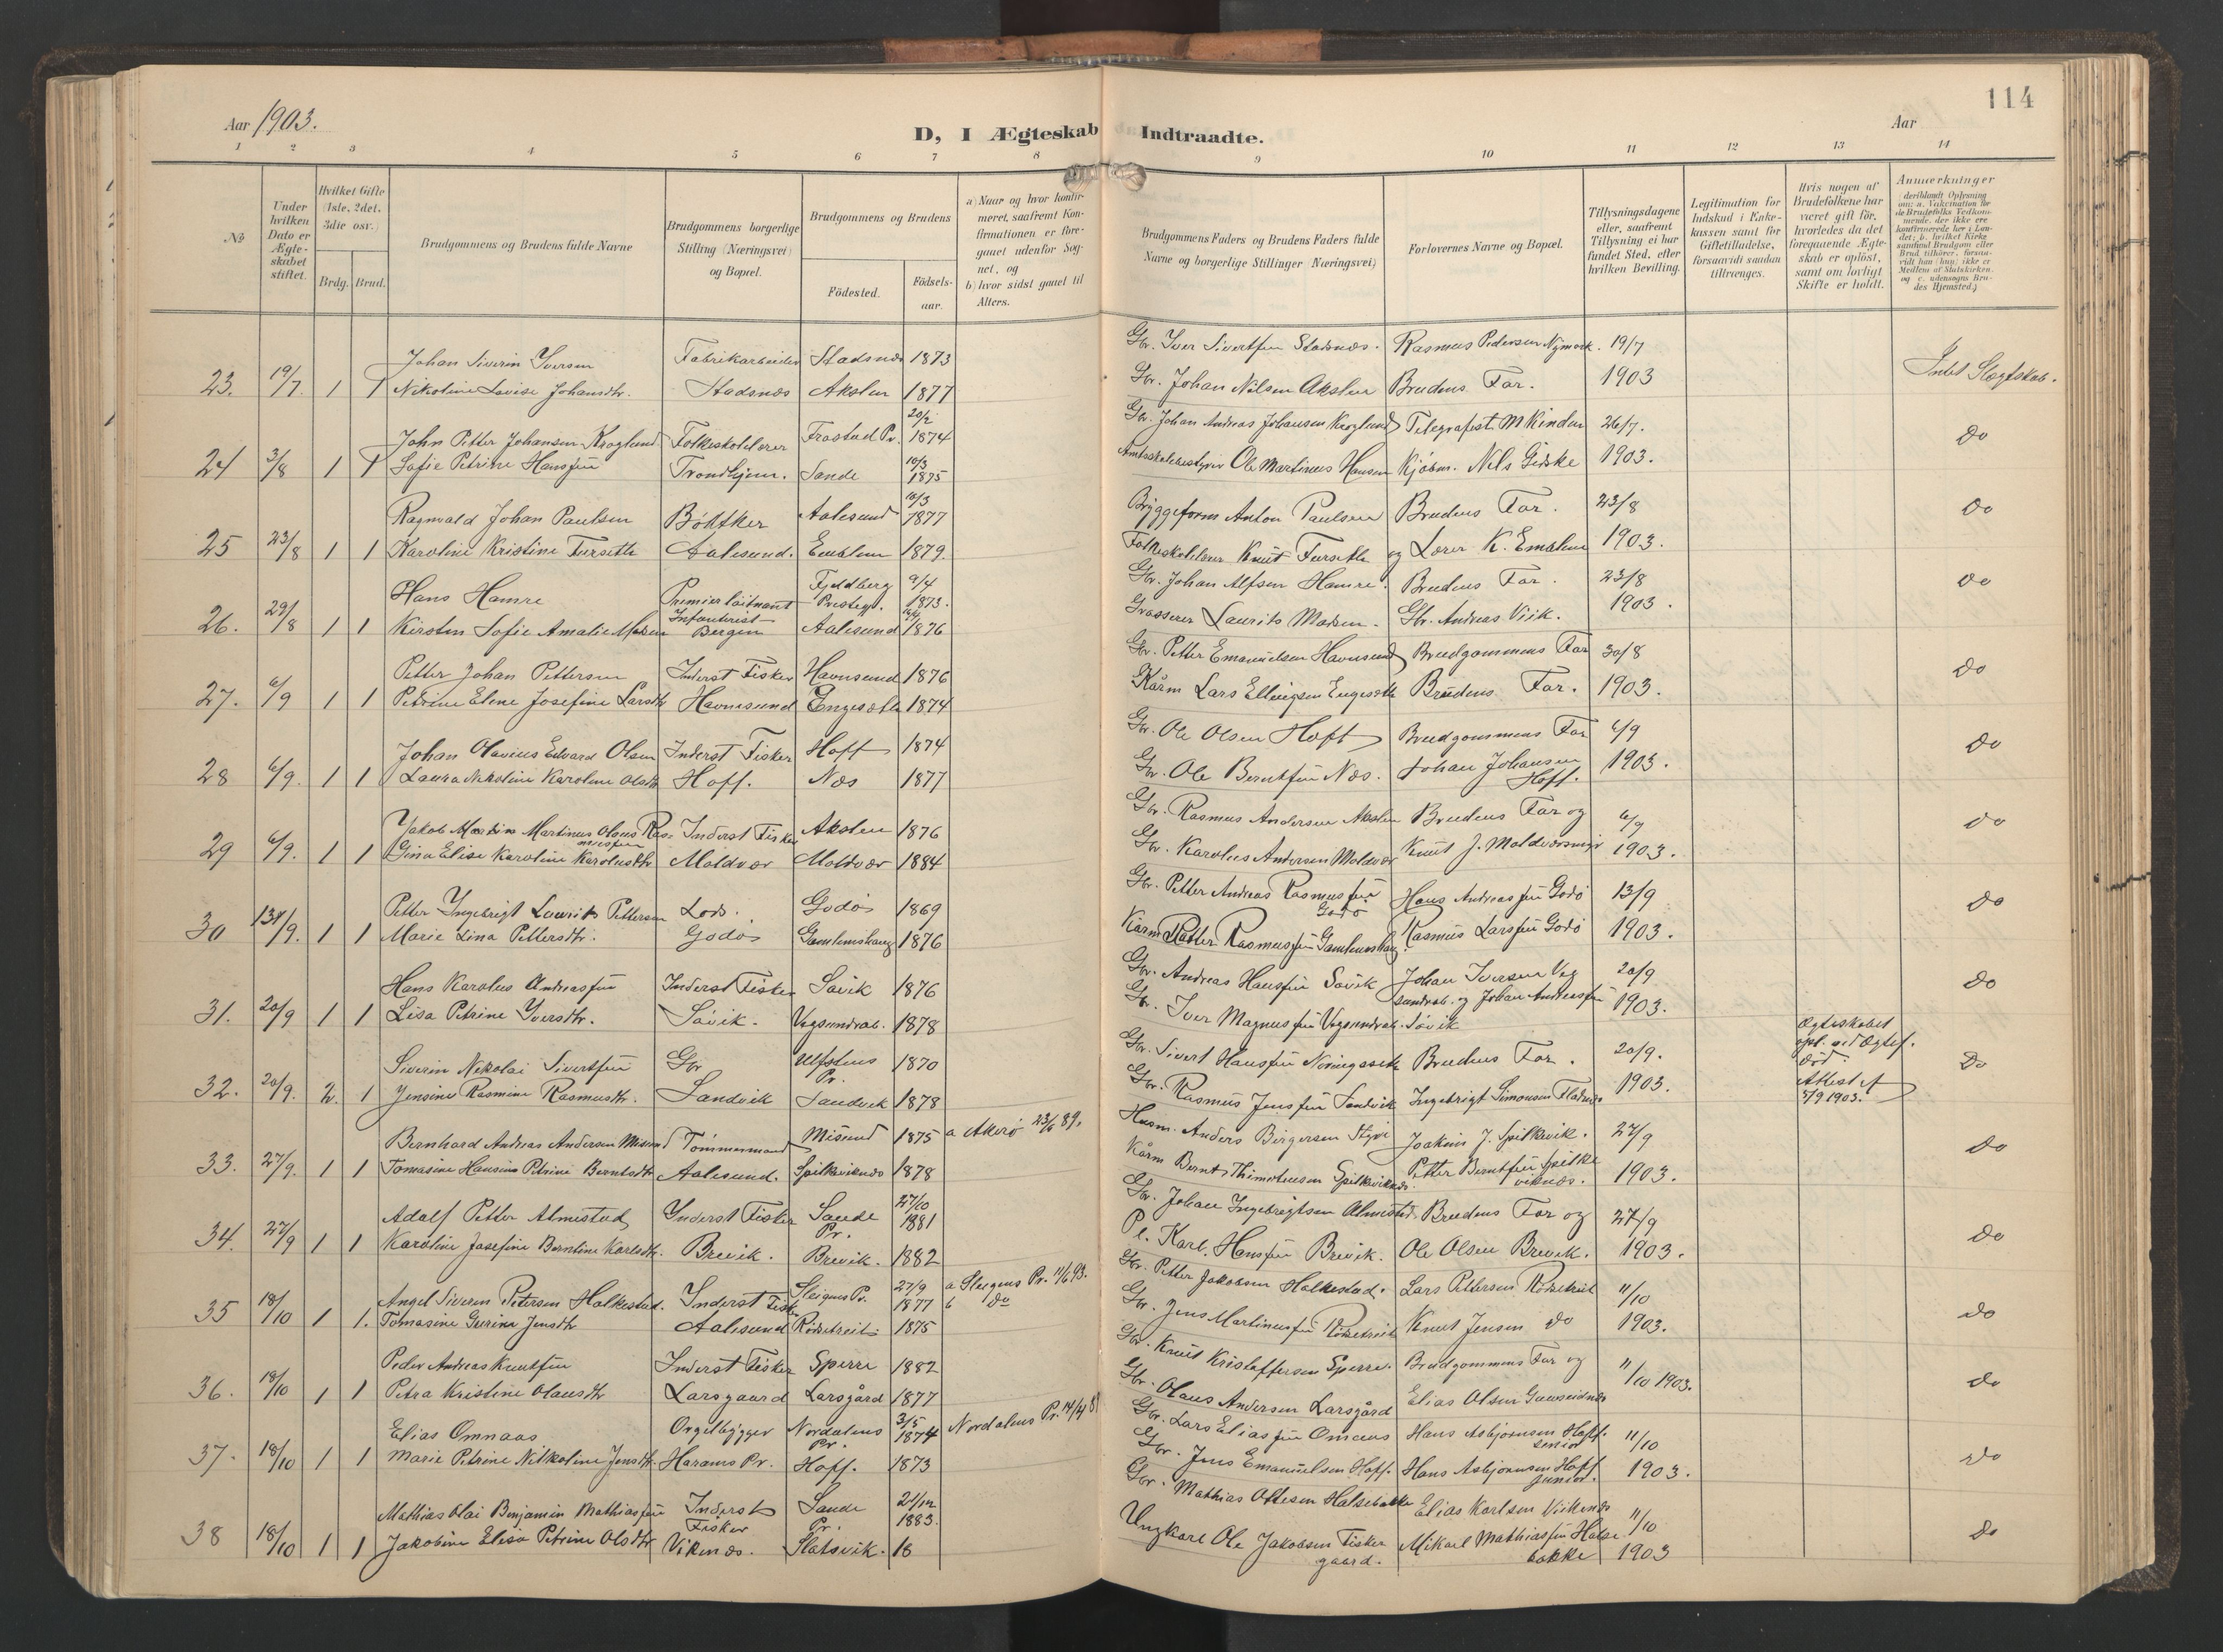 114
Aar 1903.
D, I Ægteskab Indtraadte.
Aar
1 2 3 4 5 6 7 8 9 10 11 12 13 14
No
Under hvilken Dato er Ægteskabet stiftet.
Hvilket Gifte (1ste, 2det, 3die osv.)
Brdg. Brud.
Brudgommens og Brudens fulde Navne
Brudgommens borgerlige Stilling (Næringsvei) og Bopæl.
Brudgommens og Brudens
Födested.
Födselsaar.
a) Naar og hvor konfirmeret, saafremt Konfirmationen er foregaaet udenfor Sognet, og
b) hvor sidst gaaet til Alters.
Brudgommens Faders og Brudens Faders fulde Navne og borgerlige Stillinger (Næringsvei)
Forlovernes Navne og Bopæl.
Tillysningsdagene eller, saafremt Tillysning ei har fundet Sted, efter hvilken Bevilling.
Legitimation for Indskud i Enkekassen samt for Giftetilladelse, forsaavidt saadan tiltrænges.
Hvis nogen af Brudefolkene har været gift för, hvorledes da det foregaaende Ægteskab er oplöst, samt om lovligt Skifte er holdt.
Anmærkninger (deriblandt Oplysning om: a. Vakcination for de Brudefolks Vedkommende, der ikke ere konfirmerede her i Landet; b. hvilket Kirkesamfund Brudgom eller Brud tilhörer, forsaavidt han (hun) ikke er Medlem af Statskirken, og c. udensogns Brudes Hjemsted.)
23. 19/7. 1 1
Johan Siverin Iversen Fabrikarbeider Stadsnes 1873 Gbr. Iver Sivertsen Stadsnes. Rasmus Pedersen Nymark. 19/7
Nikoline Lovise Johansdtr. Stadsnes Akslen 1877 Gbr. Johan Nilsen Akslen Brudens Far. 1903 Intet Slægtskab.
24 3/8 1 1
John Petter Johansen Kroglund Folkeskolelærer Frostad Pr. 20/2 1874 Gbr. Johan Andreas Johansen Kroglund Telegrafist M Kinden 26/7.
Sofie Petrine Hansen Trondhjem. Sande 1875 Amtsskolebestyrer Ole Martinus Hansen Kjöbm. Nils Giske 1903. do
25 23/8 1 1
Ragnvald Johan Paulsen Bödtker Aalesund 1877 Bryggeform Anton Paulsen Brudens Far. 23/8
Karoline Kristine Furseth Aalesund. Emblem 1879. Folkeskolelærer Knut Furseth og Lærer K. Emblem 1903. do
26. 29/8 1 1
Hans Hamre Premierlöitnant Infanteriet Prestegj. 9/4 1873. Gbr. Johan Alfsen Hamre. Brudens Far. 23/8
Kirsten Sofie Amalie Madsen Bergen Aalesund 1876 Grosserer Laurits Madsen. Gbr. Andreas Viik. 1903. do
27. 6/9 1 1
Petter Johan Pettersen Inderst Fisker Havnsund 1876 Gbr. Petter Emanuelsen Havnsund Brudgommens Far 30/8
Petrine Elene Josefine Larsdtr Havnsund Engeseth 1874 Kårm Lars Ellingsen Engeseth Brudens Far. 1903. do
28 6/9. 1 1
Johan Olavius Edvard Olsen Inderst Fisker Hoff 1874 Gbr. Ole Olsen Hoff Brudgommens Far 6/9
Laura Nikoline Karoline Olsdtr Hoff. Næs 1877 Gbr. Ole Berntsen Næs. Johan Johansen Hoff. 1903. do
29 6/9. 1 1
Jakob Martin Martinus Olaus Rasmussen Inderst Fisker Akslen 1876 Gbr. Rasmus Andersen Akslen Brudens Far og 6/9
Gina Elise Karoline Karolusdtr Moldvær Moldvær 1884 Gbr. Karolus Andersen Moldvær Knut J. Moldværsmyr 1903. do
30 13/9. 1 1
Petter Ingebrigt Laurits Pettersen Lods. Godö 1869 Gbr. Petter Andreas Rasmussen Godö Hans Andreassen Godö 13/9
Marie Lina Pettersdtr. Godö Gamlemshaug 1876 Kårm Petter Rasmussen Gamlemshaug. Rasmus Larssen Godö 1903. do
31. 20/9 1 1
Hans Karolus Andreassen Inderst Fisker Sövik 1876 Gbr. Andreas Hanssen Sövik Johan Iversen Veg 20/9
Lisa Petrine Iversdtr. Sövik. Vegsundral. 1878 Gbr. Iver Magnussen Vegsundral. sundral. og Johan Andreassen Sövik 1903. do
32. 20/9. 2. 1
Siverin Nikolai Sivertsen Gbr Ulfstens Pr. 1870 Gbr. Sivert Hanssen Nöringseth Brudens Far. 20/9. Ægteskabet opl. ved Ægtef. död. Attest af 5/9 1903.
Jensine Rasmine Rasmusdtr. Sandvik Sandvik 1878 Gbr. Rasmus Jenssen Sandvik Ingebrigt Simonsen Fladnes 1903. Do
33. 27/9. 1 1
Bernhard Andreas Andersen Misund Tömmermand Misund 1875 a Akerö 23/6 89. Husm. Anders Birgersen Joakim J. Spilkevik. 27/9
Tomasine Hansine Petrine Berntsdtr Aalesund. Spilkeviknes 1878 Kårm Bernt Thimoteusen Spilkeviknes. Petter Berntsen Spilkeviknes. 1903. do
34. 27/9 1 1
Adolf Petter Almestad Inderst Fisker Sande Pr. 27/10 1881 Gbr. Johan Ingebrigtsen Almestad Brudens Far og 27/9
Karoline Josefine Berntine Karlsdtr. Brevik. Brevik. 1882 P.l. Karl Hanssen Brevik. Ole Olsen Brevik. 1903. do
35 18/10 1 1.
Angel Siveren Petersen Halkestad. Inderst Fisker Steigens Pr. 27/9 1877 a Steigens Pr. 11/6 93. b do Gbr. Petter Jakobsen Halkestad. Lars Pettersen Rödsetreit 11/10
Tomasine Gurine Jensdtr Aalesund Rödsetreit 1875 Gbr. Jens Martinussen Rödsetreit Knut Jensen do 1903. do
36. 18/10 1 1
Peder Andreas Knutsen Inderst Fisker Sperre 1882 Gbr. Knut Kristoffersen Sperre. Brudgommens Far og 11/10 1903.
Petra Kristine Olausdtr Larsgaard Larsgård 1877 Gbr. Olaus Andersen Larsgård Elias Olsen do
37. 18/10 1 1
Elias Omnaas Orgelbygger Nordalens Pr. 3/5 1874 Nordalens Pr. 14/4 Gbr. Lars Eliassen Hans Asbjörnsen Hoff. senior 11/10
Marie Petrine Nilkoline Jensdtr. Harams Pr. Hoff. 1873 Gbr. Jens Emanuelsen Hoff. Hans Asbjörnsen Hoff junior. 1903. do
38 18/10 1 1
Mathias Olai Benjamin Mathiassen Inderst Fisker Sande Pr. 21/12 1883. Gbr. Mathias Ottesen Halsebakke Elias Karlsen Viknes 11/10
Jakobine Elisa Petrine Olsdtr Viknes. Slatsvik. 18 Ungkarl Ole Jakobsen Fiskergaard. Mikael Mathiassen Halsebakke 1903 do